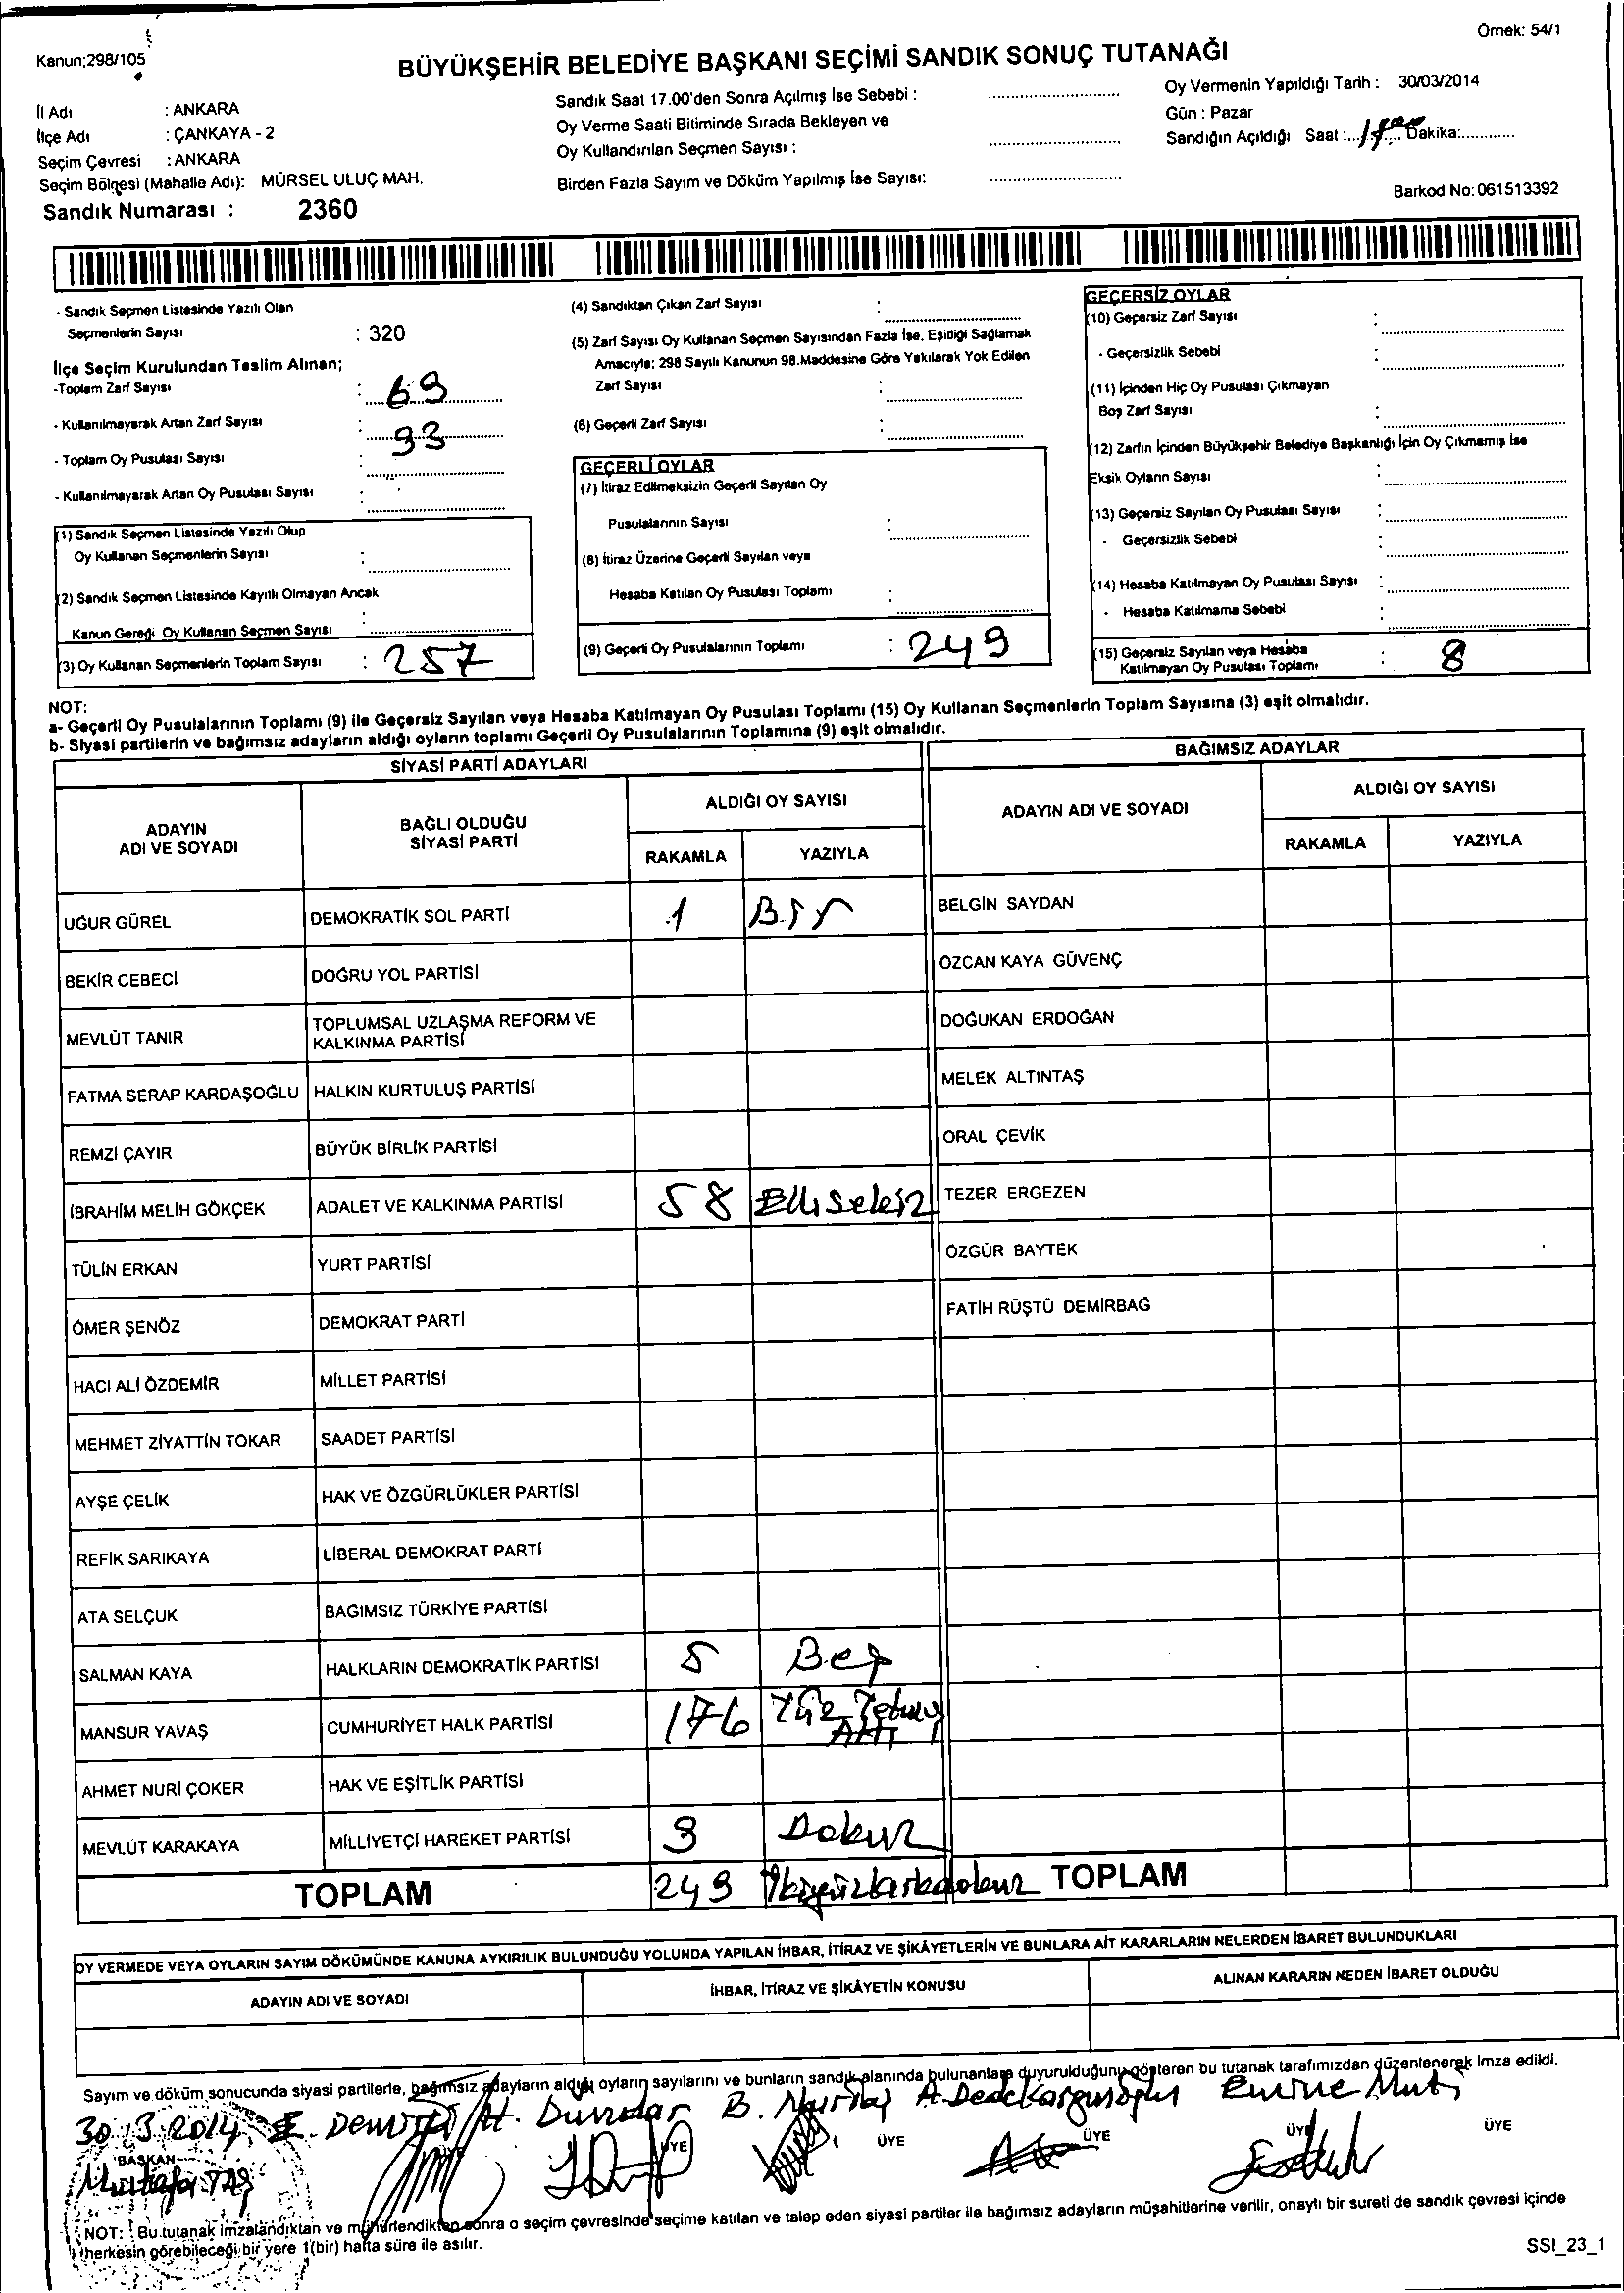 Kanun;298/105
Örnek: 54/1
BÜYÜKŞEHİR BELEDİYE BAŞKANI SEÇİMİ SANDIK SONUÇ TUTANAĞI
İl Adı : ANKARA
İlçe Adı : ÇANKAYA - 2
Seçim Çevresi : ANKARA
Seçim Bölgesi (Mahalle Adı): MÜRSEL ULUÇ MAH.
Sandık Numarası : 2360
Sandık Saat 17.00'den Sonra Açılmış İse Sebebi :
Oy Verme Saati Bitiminde Sırada Bekleyen ve
Oy Kullandırılan Seçmen Sayısı :
Birden Fazla Sayım ve Döküm Yapılmış İse Sayısı:
Oy Vermenin Yapıldığı Tarih : 30/03/2014
Gün : Pazar
Sandığın Açıldığı Saat : Dakika:
Barkod No: 061513392
- Sandık Seçmen Listesinde Yazılı Olan
Seçmenlerin Sayısı : 320
İlçe Seçim Kurulundan Teslim Alınan;
-Toplam Zarf Sayısı : 69
- Kullanılmayarak Artan Zarf Sayısı : 93
- Toplam Oy Pusulası Sayısı :
- Kullanılmayarak Artan Oy Pusulası Sayısı :
(1) Sandık Seçmen Listesinde Yazılı Olup
Oy Kullanan Seçmenlerin Sayısı :
(2) Sandık Seçmen Listesinde Kayıtlı Olmayan Ancak
Kanun Gereği Oy Kullanan Seçmen Sayısı :
(3) Oy Kullanan Seçmenlerin Toplam Sayısı : 257
(4) Sandıktan Çıkan Zarf Sayısı :
(5) Zarf Sayısı Oy Kullanan Seçmen Sayısından Fazla İse, Eşitliği Sağlamak
Amacıyla; 298 Sayılı Kanunun 98.Maddesine Göre Yakılarak Yok Edilen
Zarf Sayısı :
(6) Geçerli Zarf Sayısı :
GEÇERLİ OYLAR
(7) İtiraz Edilmeksizin Geçerli Sayılan Oy
Pusulalarının Sayısı :
(8) İtiraz Üzerine Geçerli Sayılan veya
Hesaba Katılan Oy Pusulası Toplamı :
(9) Geçerli Oy Pusulalarının Toplamı : 249
GEÇERSİZ OYLAR
(10) Geçersiz Zarf Sayısı :
- Geçersizlik Sebebi :
(11) İçinden Hiç Oy Pusulası Çıkmayan
Boş Zarf Sayısı :
(12) Zarfın İçinden Büyükşehir Belediye Başkanlığı İçin Oy Çıkmamış İse
Eksik Oyların Sayısı :
(13) Geçersiz Sayılan Oy Pusulası Sayısı :
- Geçersizlik Sebebi :
(14) Hesaba Katılmayan Oy Pusulası Sayısı :
- Hesaba Katılmama Sebebi :
(15) Geçersiz Sayılan veya Hesaba
Katılmayan Oy Pusulası Toplamı : 8
NOT:
a- Geçerli Oy Pusulalarının Toplamı (9) ile Geçersiz Sayılan veya Hesaba Katılmayan Oy Pusulası Toplamı (15) Oy Kullanan Seçmenlerin Toplam Sayısına (3) eşit olmalıdır.
b- Siyasi partilerin ve bağımsız adayların aldığı oyların toplamı Geçerli Oy Pusulalarının Toplamına (9) eşit olmalıdır.
SİYASİ PARTİ ADAYLARI
BAĞIMSIZ ADAYLAR
ADAYIN ADI VE SOYADI
BAĞLI OLDUĞU SİYASİ PARTİ
ALDIĞI OY SAYISI
RAKAMLA YAZIYLA
ADAYIN ADI VE SOYADI
ALDIĞI OY SAYISI
RAKAMLA YAZIYLA
UĞUR GÜREL DEMOKRATİK SOL PARTİ 1 Bir BELGİN SAYDAN
BEKİR CEBECİ DOĞRU YOL PARTİSİ ÖZCAN KAYA GÜVENÇ
MEVLÜT TANIR TOPLUMSAL UZLAŞMA REFORM VE KALKINMA PARTİSİ DOĞUKAN ERDOĞAN
FATMA SERAP KARDAŞOĞLU HALKIN KURTULUŞ PARTİSİ MELEK ALTINTAŞ
REMZİ ÇAYIR BÜYÜK BİRLİK PARTİSİ ORAL ÇEVİK
İBRAHİM MELİH GÖKÇEK ADALET VE KALKINMA PARTİSİ 58 Ellisekiz TEZER ERGEZEN
TÜLİN ERKAN YURT PARTİSİ ÖZGÜR BAYTEK
ÖMER ŞENÖZ DEMOKRAT PARTİ FATİH RÜŞTÜ DEMİRBAĞ
HACI ALİ ÖZDEMİR MİLLET PARTİSİ
MEHMET ZİYATTİN TOKAR SAADET PARTİSİ
AYŞE ÇELİK HAK VE ÖZGÜRLÜKLER PARTİSİ
REFİK SARIKAYA LİBERAL DEMOKRAT PARTİ
ATA SELÇUK BAĞIMSIZ TÜRKİYE PARTİSİ
SALMAN KAYA HALKLARIN DEMOKRATİK PARTİSİ 5 Beş
MANSUR YAVAŞ CUMHURİYET HALK PARTİSİ 176 Yüz Yetmiş Altı
AHMET NURİ ÇOKER HAK VE EŞİTLİK PARTİSİ
MEVLÜT KARAKAYA MİLLİYETÇİ HAREKET PARTİSİ 9 Dokuz
TOPLAM 249 İkiyüzkırkdokuz TOPLAM
OY VERMEDE VEYA OYLARIN SAYIM DÖKÜMÜNDE KANUNA AYKIRILIK BULUNDUĞU YOLUNDA YAPILAN İHBAR, İTİRAZ VE ŞİKÂYETLERİN VE BUNLARA AİT KARARLARIN NELERDEN İBARET BULUNDUKLARI
ADAYIN ADI VE SOYADI İHBAR, İTİRAZ VE ŞİKÂYETİN KONUSU ALINAN KARARIN NEDEN İBARET OLDUĞU
Sayım ve döküm sonucunda siyasi partilerle, bağımsız adayların aldığı oyların sayılarını ve bunların sandık alanında bulunanlara duyurulduğunu gösteren bu tutanak tarafımızdan düzenlenerek imza edildi.
30.3.2014 Emine Muti
BAŞKAN ÜYE ÜYE ÜYE ÜYE ÜYE
Mustafa TAŞ
NOT: Bu tutanak imzalandıktan ve mühürlendikten sonra o seçim çevresinde seçime katılan ve talep eden siyasi partiler ile bağımsız adayların müşahitlerine verilir, onaylı bir sureti de sandık çevresi içinde
herkesin görebileceği bir yere 1(bir) hafta süre ile asılır.
SSI_23_1